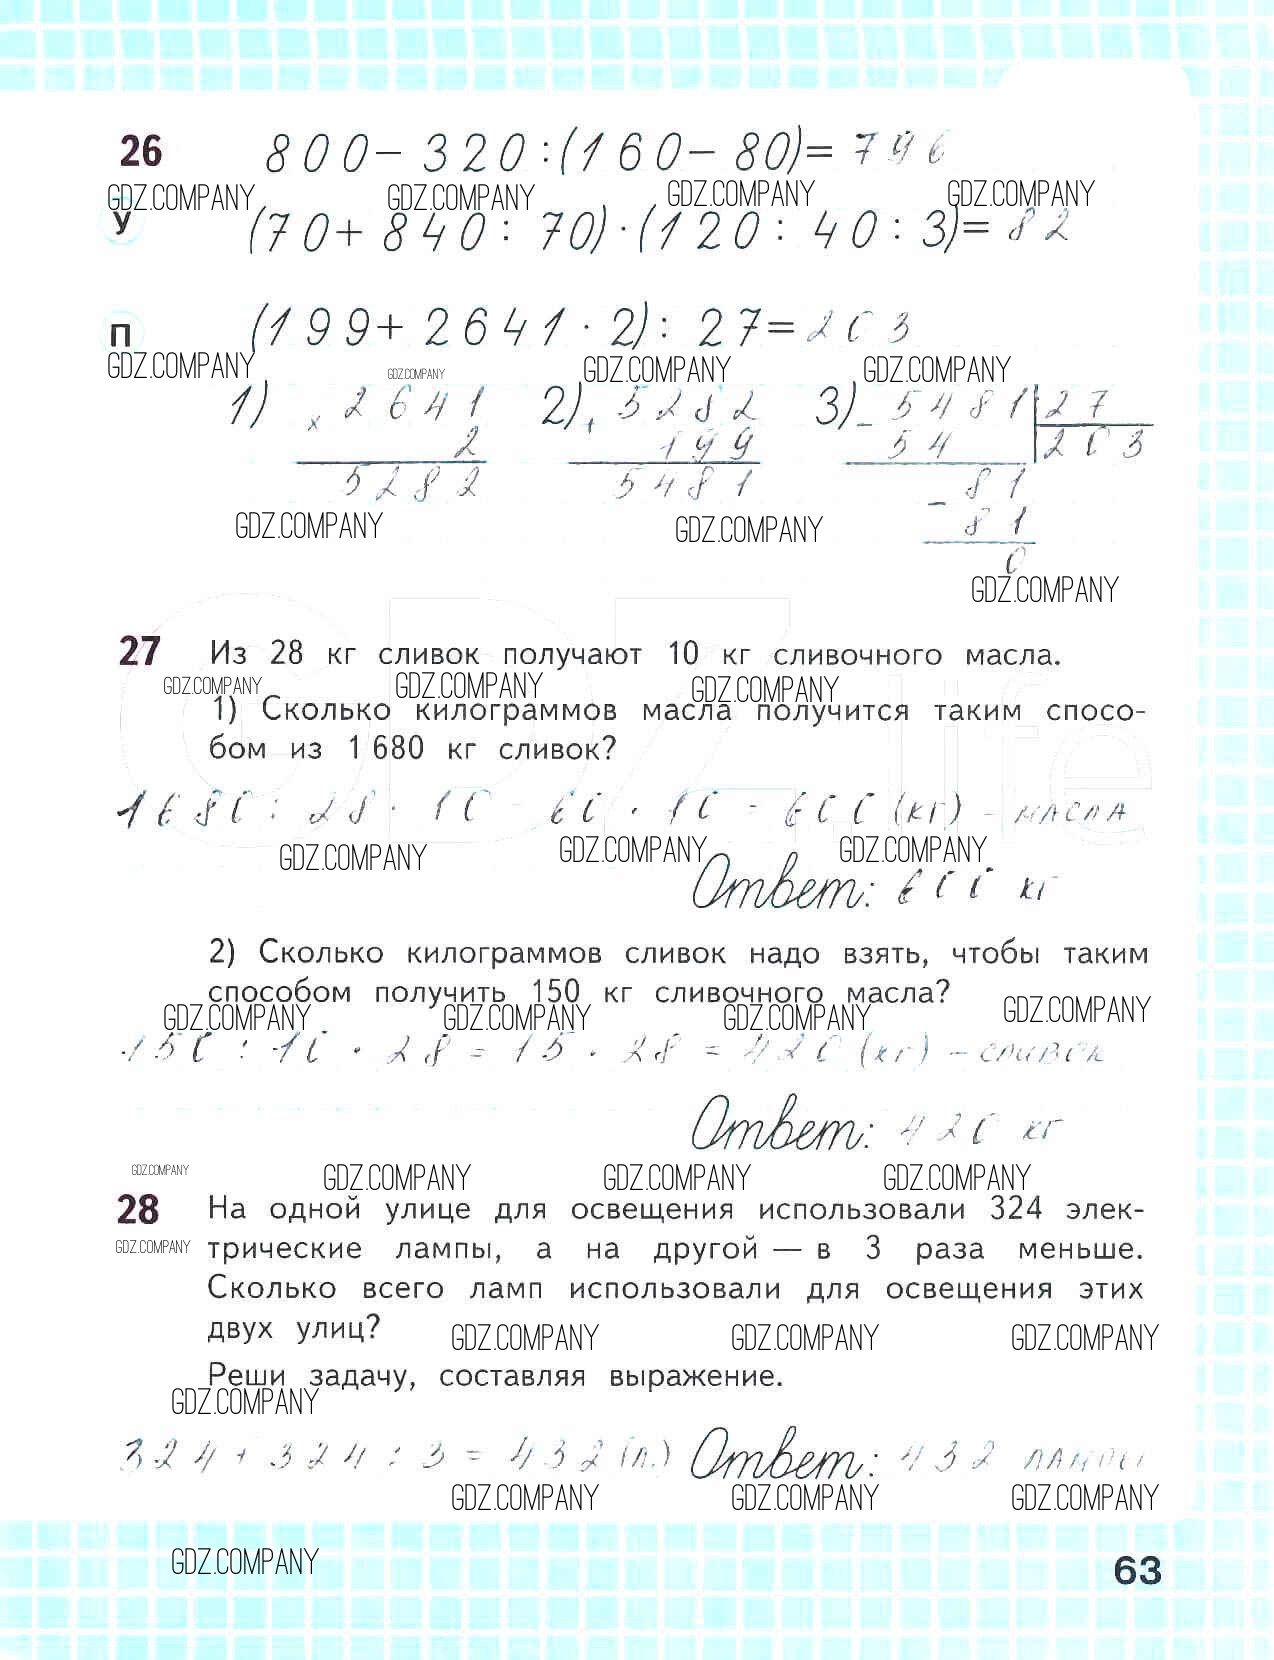 26 800 − 320 : (160 − 80) = 796
GDZ.COMPANY GDZ.COMPANY GDZ.COMPANY GDZ.COMPANY
У (70 + 840 : 70) · (120 : 40 : 3) = 82
П (199 + 2641 · 2) : 27 = 203
GDZ.COMPANY GDZ.COMPANY GDZ.COMPANY GDZ.COMPANY
1) × 2641 2) + 5282 3) − 5481 27
2 199 54 203
5282 5481 − 81
81
GDZ.COMPANY GDZ.COMPANY
0
GDZ.COMPANY
27 Из 28 кг сливок получают 10 кг сливочного масла.
GDZ.COMPANY GDZ.COMPANY GDZ.COMPANY
1) Сколько килограммов масла получится таким спосо-
бом из 1 680 кг сливок?
GDZ.life
1680 : 28 · 10 = 60 · 10 = 600 (кг) – масла
GDZ.COMPANY GDZ.COMPANY GDZ.COMPANY
Ответ: 600 кг
2) Сколько килограммов сливок надо взять, чтобы таким
способом получить 150 кг сливочного масла?
GDZ.COMPANY GDZ.COMPANY GDZ.COMPANY GDZ.COMPANY
150 : 10 · 28 = 15 · 28 = 420 (кг) – сливок
Ответ: 420 кг
GDZ.COMPANY GDZ.COMPANY GDZ.COMPANY GDZ.COMPANY
28 На одной улице для освещения использовали 324 элек-
GDZ.COMPANY трические лампы, а на другой — в 3 раза меньше.
Сколько всего ламп использовали для освещения этих
двух улиц?
GDZ.COMPANY GDZ.COMPANY GDZ.COMPANY
Реши задачу, составляя выражение.
GDZ.COMPANY
324 + 324 : 3 = 432 (л.) Ответ: 432 лампы
GDZ.COMPANY GDZ.COMPANY GDZ.COMPANY
GDZ.COMPANY
63